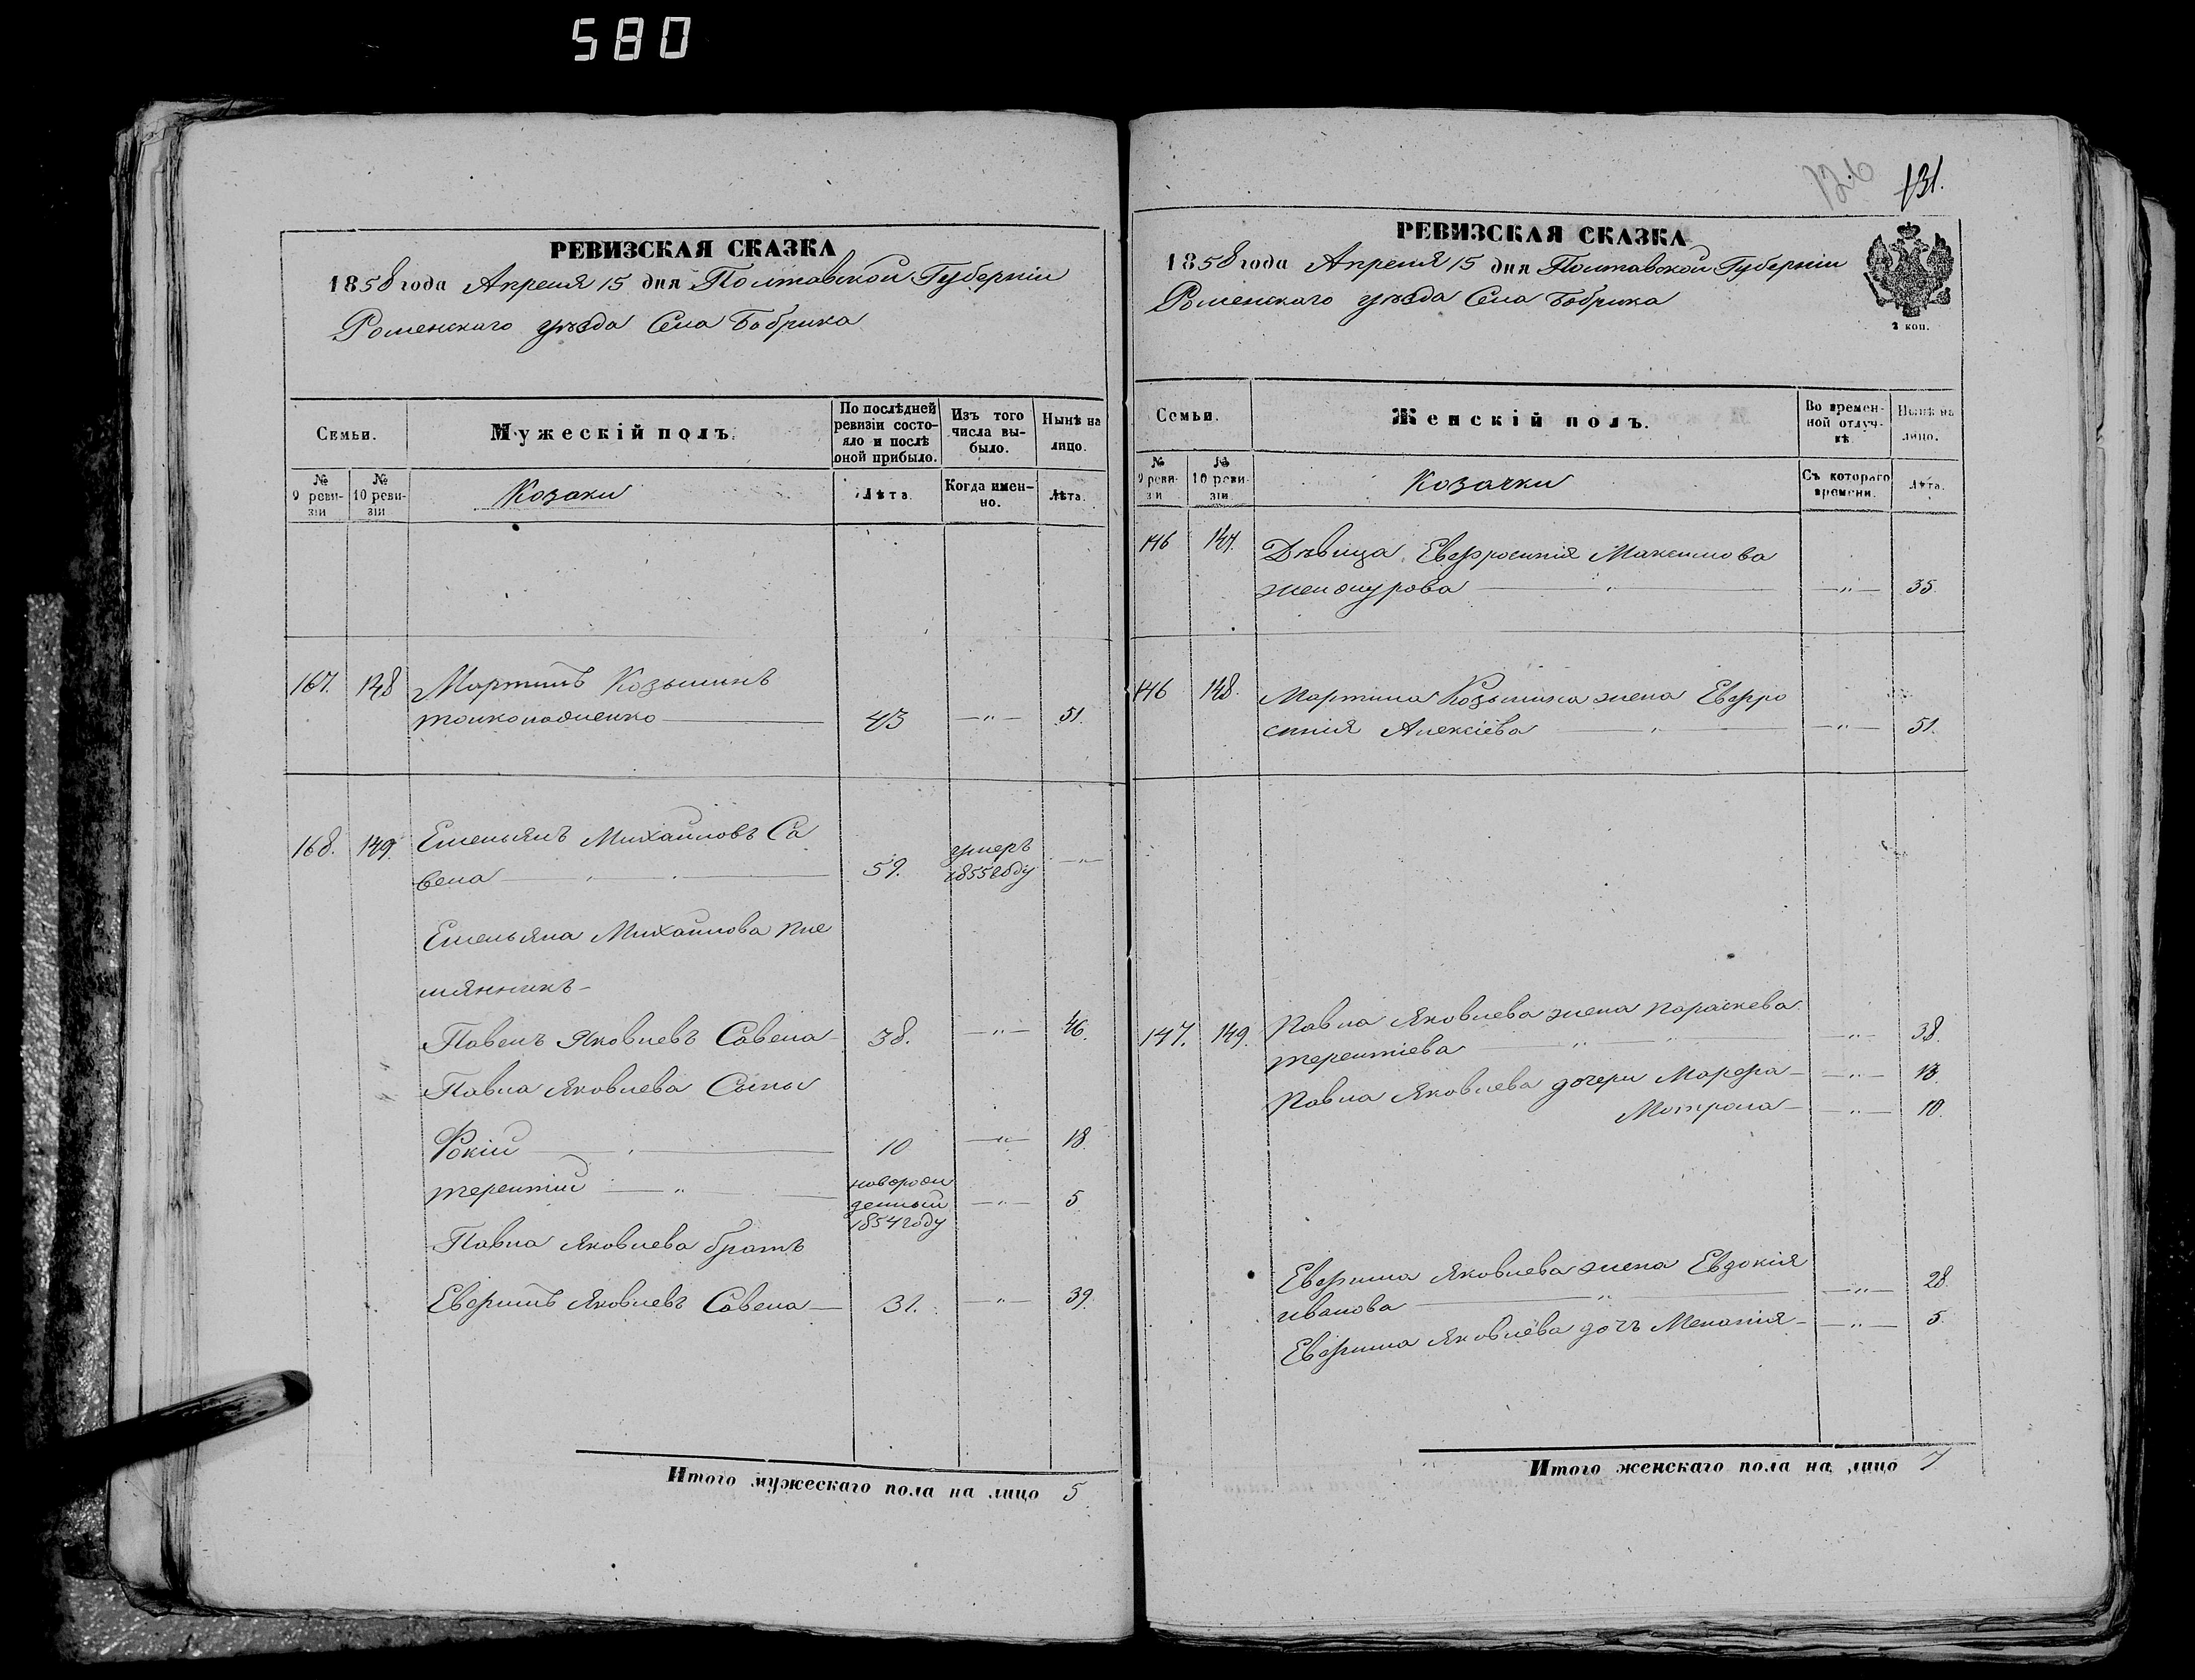 580
РЕВИЗСКАЯ СКАЗКА
1858 года Апреля 15 дня Полтавской Губерніи
Роменскаго уѣзда Села Бобрика
Семьи.
Мужескій полъ.
По послѣдней
ревизіи состо-
яло и послѣ
оной прибыло.
Изъ того
числа вы-
было.
Нынѣ на
лицо.
№
9 реви-
зіи
№
10 реви-
зіи
Козаки
Лѣта
Когда имен-
но.
Лѣта.
167. 148 Мартинъ Козьминъ
43 — " — 51.
168. 149. Емельянъ Михаиловъ Са
вела 59. умеръ 1855 году — " —
Емельяна Михаилова пле
мянникъ -
Павелъ Яковлевъ Савела 38. — " — 46.
Павла Яковлева Сыны
Фокій 10 — " — 18.
Терентій — " — новорож
денный
1854 году — " — 5
Павла Яковлева братъ
Евфимъ Яковлевъ Савела — 31. — " — 39.
Итого мужескаго пола на лицо 5
131.
РЕВИЗСКАЯ СКАЗКА
1858 года Апреля 15 дня Полтавской Губерніи
Роменскаго уѣзда Села Бобрика
2 коп.
Семьи.
Женскій полъ.
Во времен-
ной отлуч-
кѣ
Нынѣ на
лицо.
№
9 реви-
зіи
№
10 реви-
зіи
Козачки
Съ котораго
времени.
Лѣта.
146 147. Дѣвица Евфросинія Максимова
— " — 35.
146 148. Мартина Козьмина жена Евфро
синія Алексіева — " — 51.
147. 149. Павла Яковлева жена Параскева
Терентіева — " — 38.
Павла Яковлева дочери Марфа — " — 13.
Мотрона — " — 10.
Евфима Яковлева жена Евдокія
Иванова — " — 28.
Евфима Яковлева дочъ Меланія — " — 5.
Итого женскаго пола на лицо 7